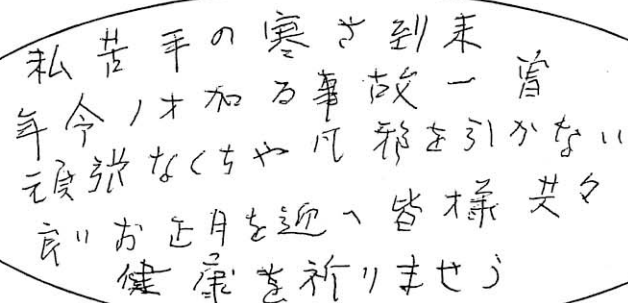 私苦手の寒さ到来
年令1才加る事故一曽
頑張なくちや風邪を引かない
良いお正月を迎へ皆様共々
健康を祈りませう